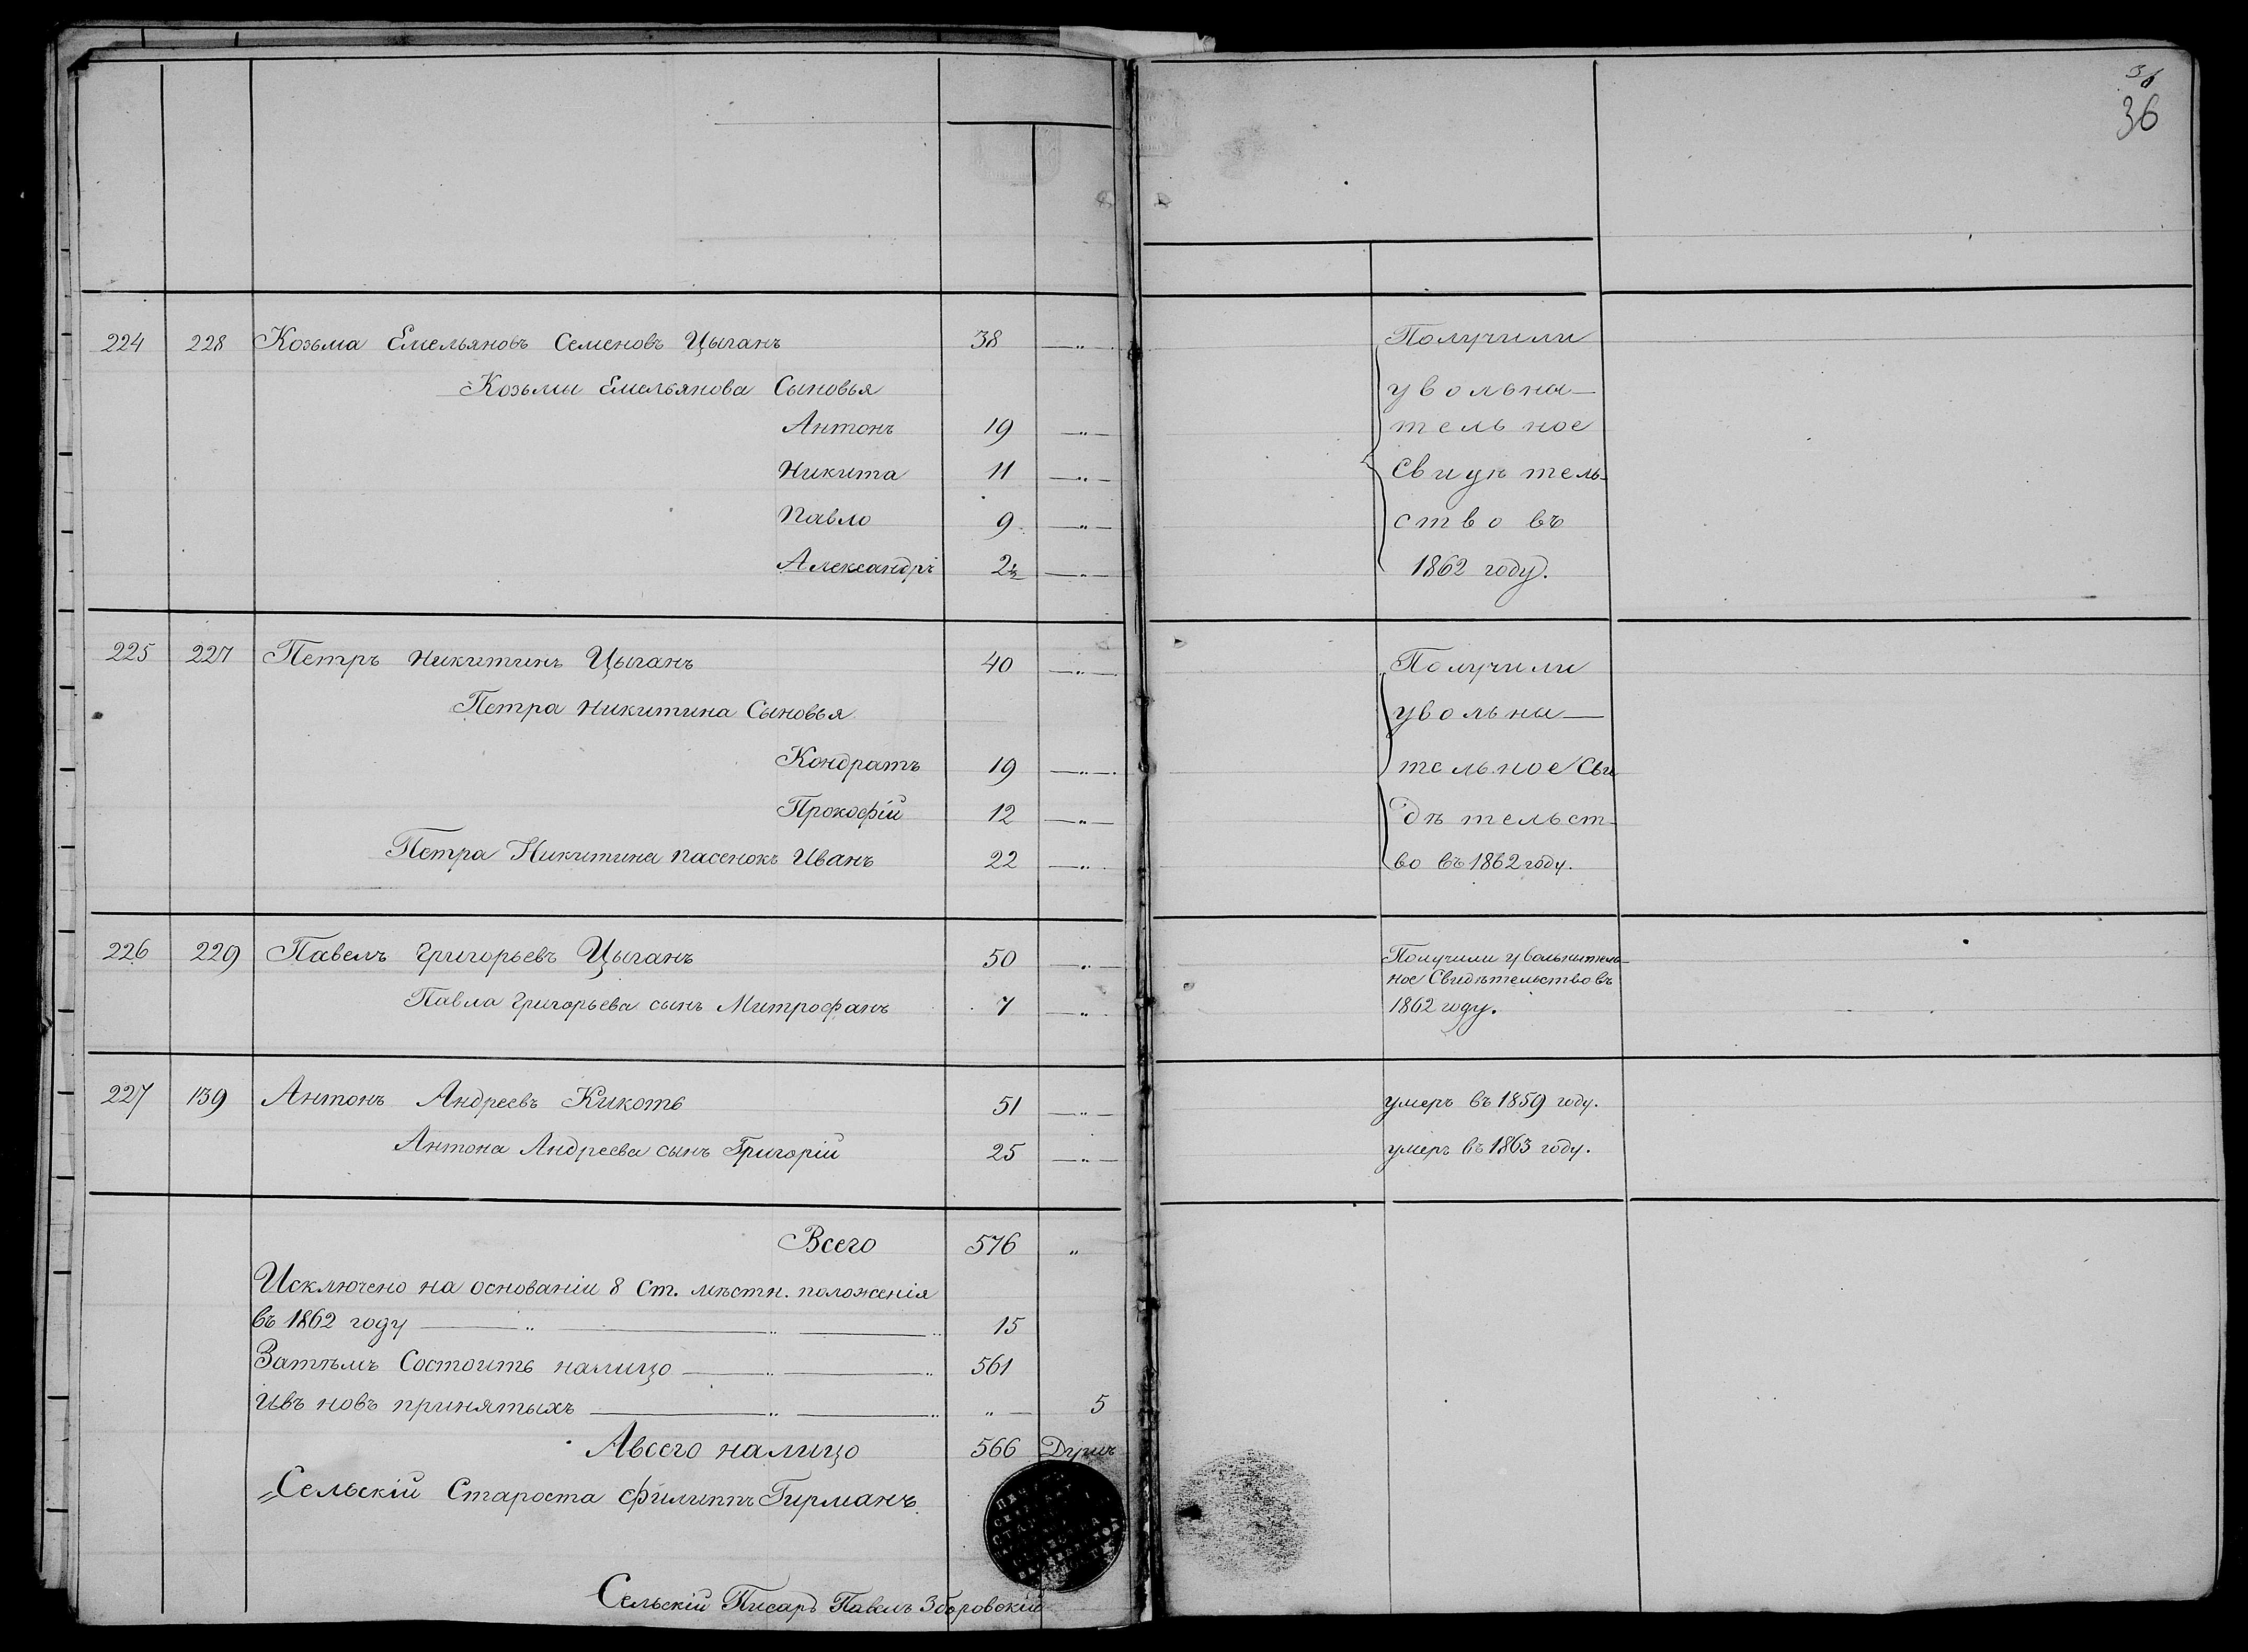 36
36
224 228 Козьма Емельяновъ Семеновъ Цыганъ 38 —„— Получили
Козьмы Емельянова Сыновья увольни—
Антонъ 19 —„— тельное
Никита 11 —„— Свидѣтель-
Павло 9 —„— ство въ
Александръ 2½ —„— 1862 году.
225 227 Петръ Никитинъ Цыганъ 40 —„— Получили
Петра Никитина Сыновья увольни—
Кондратъ 19 —„— тельное Сви
Прокофій 12 —„— дѣтельст-
Петра Никитина пасенокъ Иванъ 22 —„— во въ 1862 году.
226 229 Павелъ Григорьевъ Цыганъ 50 —„— Получили увольнитель-
ное Свидѣтельство въ
Павла Григорьева сынъ Митрофанъ 7 —„— 1862 году.
227 139 Антонъ Андреевъ Кикоть 51 —„— умеръ въ 1859 году.
Антона Андреева сынъ Григорій 25 —„— умеръ въ 1863 году.
Всего 576 „
Исключено на основаніи 8 Ст. мѣстн. положенія
въ 1862 году —„—„ 15
Затѣмъ Состоитъ налицо —„—„ 561
Ивъ новъ принятыхъ —„—„ „— 5
Авсего налицо 566 Душъ
Сельскій Староста Филиппъ Гирманъ.
Сельскій Писарь Павелъ Зборовскій